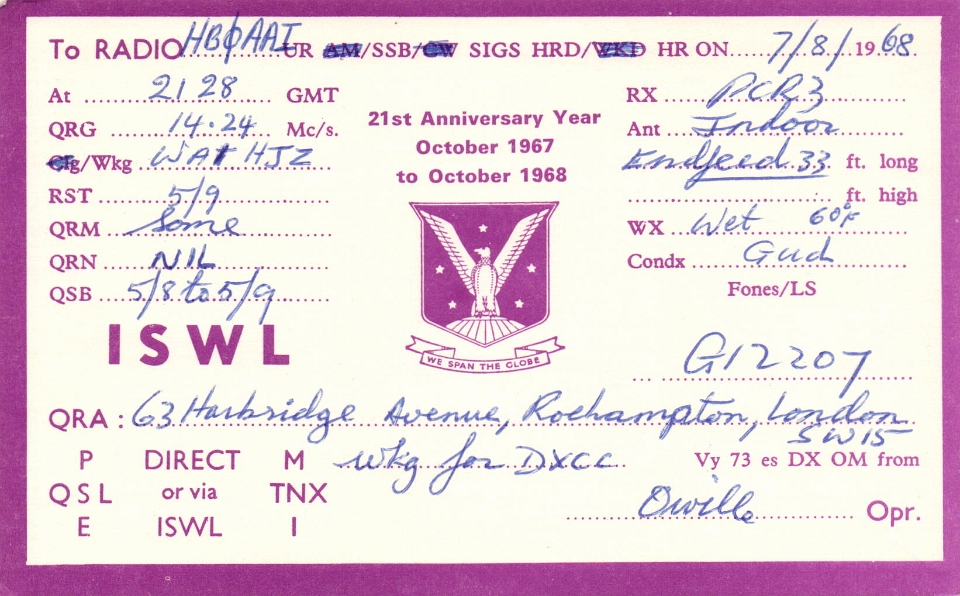 To RADIO HBØAAI UR AM/SSB/CW SIGS HRD/WKD HR ON 7/8/ 1968
At 2128 GMT
QRG 14.24 Mc/s.
Clg/Wkg WA1HJZ
RST 5/9
QRM Some
QRN NIL
QSB 5/8 to 5/9
21st Anniversary Year
October 1967
to October 1968
RX PCR3
Ant Indoor
Endfeed 33 ft. long
ft. high
WX Wet 60°F
Condx Gud
Fones/LS
WE SPAN THE GLOBE
ISWL
G12207
QRA: 63 Harbridge Avenue, Roehampton, London
SW15
P DIRECT M
QSL or via TNX
E ISWL I
Wkg for DXCC
Vy 73 es DX OM from
Orville Opr.